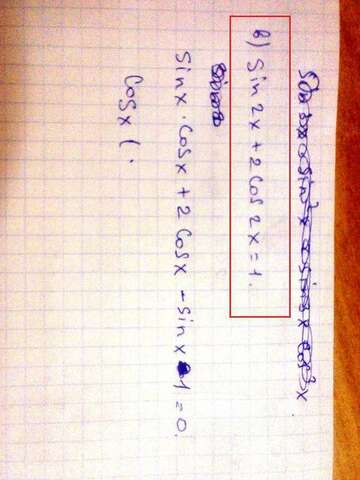 в) sin 2x + 2 cos 2x = 1.
sin x · cos x + 2 cos x - sin x 1 = 0.
cos x ( .